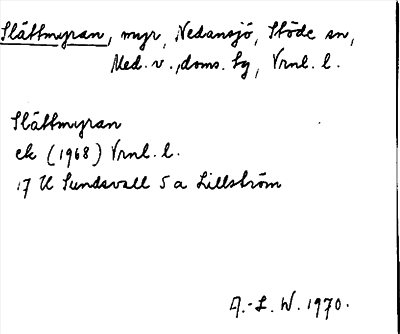 Slåttmyran, myr, Nedansjö, Stöde sn,
Med. v., doms. tg, Vrnl. l.
Slåttmyran
ek (1968) Vrnl. l.
17 H Sundsvall 5 a Lillström
A.-L. W. 1970.